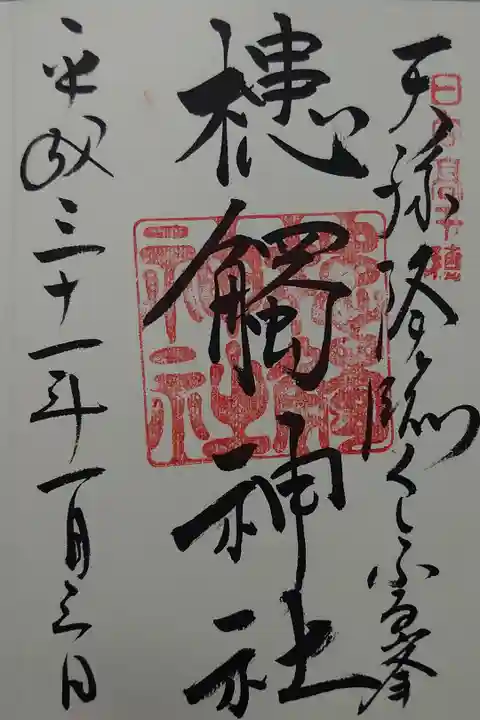 天孫降臨くしふる峯
日向高千穂
槵觸神社
槵觸神社
平成三十一年一月三日